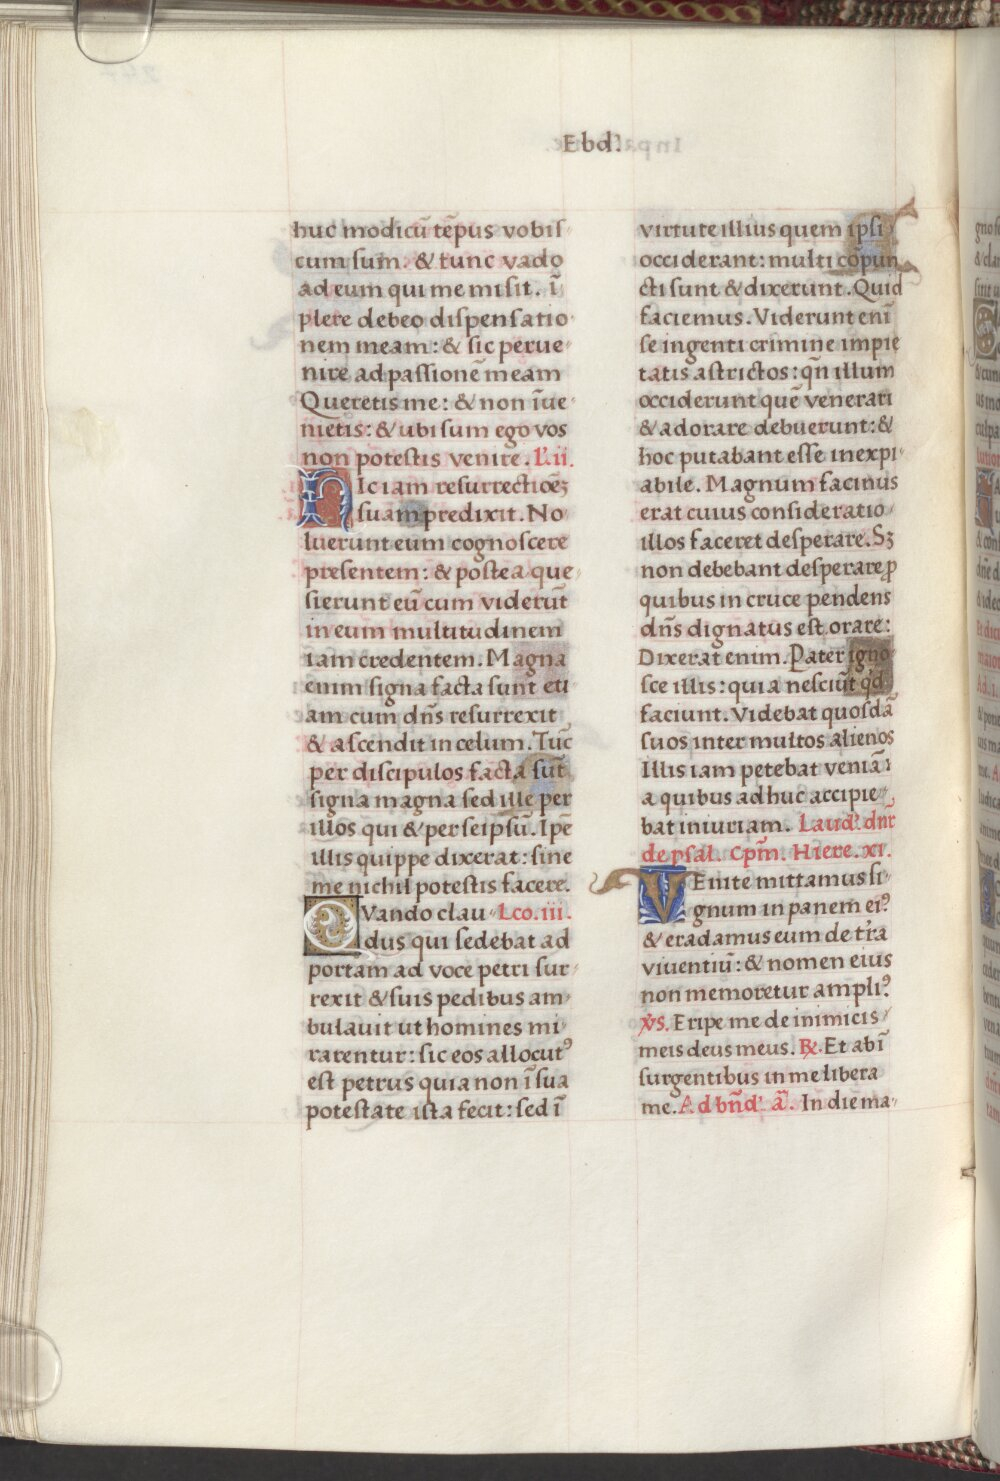 Ebd'.
huc modicū tēpus vobis
cum sum: & tunc vado
ad eum qui me misit. ī
plere debeo dispensatio
nem meam: & sic perue
nire ad passionē meam
Queretis me: & non īue
nietis: & ubi sum ego vos
non potestis venire. L'. ii.
Hic iam resurrectiōeꝫ
suam predixit. No
luerunt eum cognoscere
presentem: & postea que
sierunt eū cum viderūt
in eum multitudinem
iam credentem. Magna
enim signa facta sunt eti
am cum dn̄s resurrexit
& ascendit in celum. Tūc
per discipulos facta sūt
signa magna sed ille per
illos qui & per seipsū. Ipē
illis quippe dixerat: sine
me nichil potestis facere.
QVando clau Lco. iii.
dus qui sedebat ad
portam ad voce petri sur
rexit & suis pedibus am
bulauit ut homines mi
rarentur: sic eos allocutꝰ
est petrus quia non ī sua
potestate ista fecit: sed ī
virtute illius quem ipsi
occiderant: multi cōpun
cti sunt & dixerunt. Quid
faciemus. Viderunt enī
se ingenti crimine impie
tatis astrictos: qn̄ illum
occiderunt quē venerari
& adorare debuerunt: &
hoc putabant esse inexpi
abile. Magnum facinus
erat cuius consideratio
illos faceret desperare. Sꝫ
non debebant desperare ꝓ
quibus in cruce pendens
dn̄s dignatus est orare:
Dixerat enim. Pater igno
sce illis: quia nesciūt qd̄
faciunt. Videbat quosdā
suos inter multos alienos
Illis iam petebat veniā:
a quibus adhuc accipie
bat iniuriam. Laud'. dn̄r
de psal. Cpīm. Hiere. xi.
VEnite mittamus li
gnum in panem eiꝰ
& eradamus eum de tr̄a
viuentiū: & nomen eius
non memoretur ampliꝰ
v̓s. Eripe me de inimicis
meis deus meus. ℞. Et ab ī
surgentibus in me libera
me. Ad bn̄d'. ā. In die ma